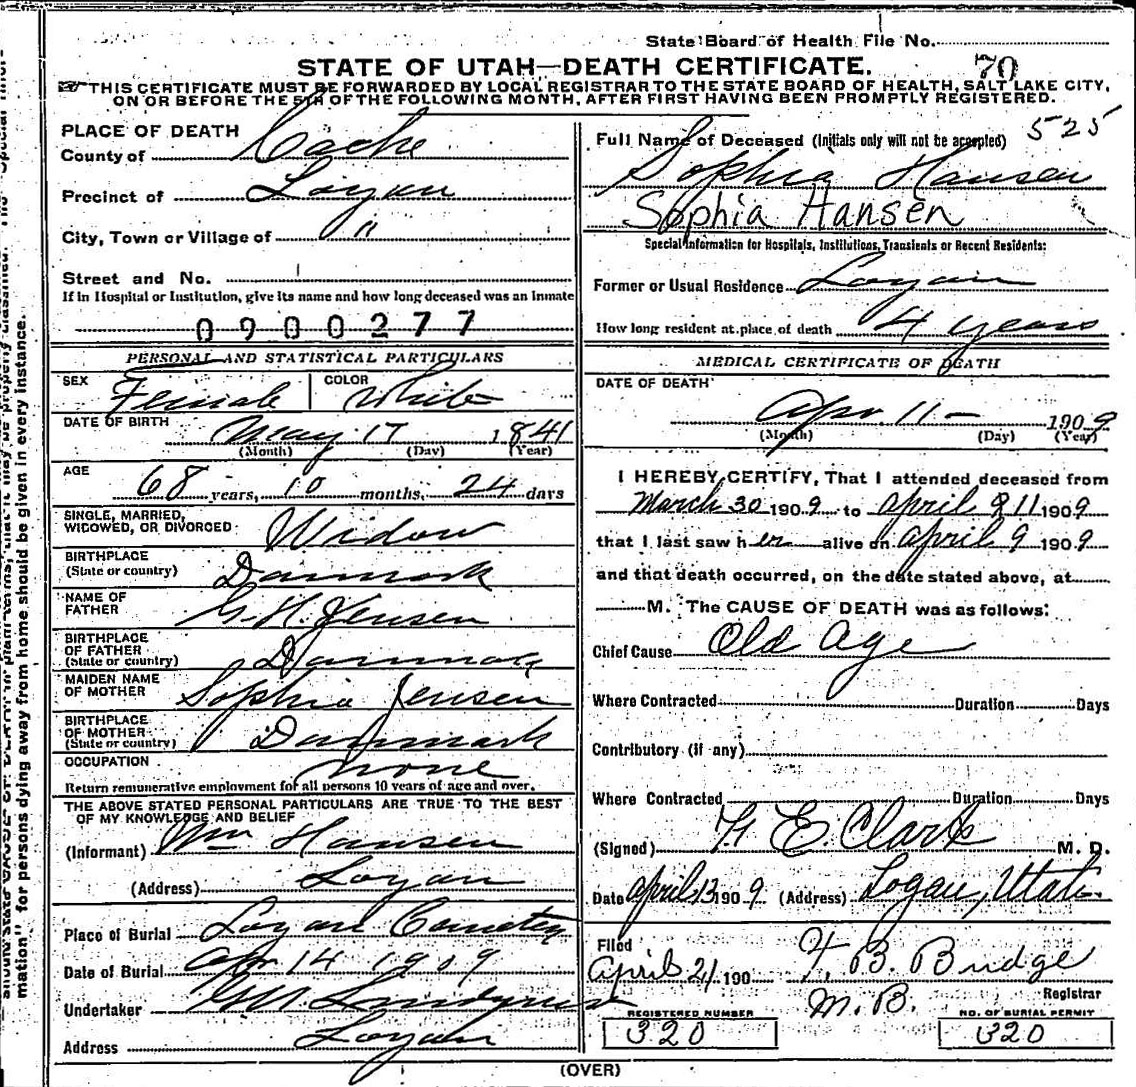 State Board of Health File No.
70
STATE OF UTAH—DEATH CERTIFICATE.
THIS CERTIFICATE MUST BE FORWARDED BY LOCAL REGISTRAR TO THE STATE BOARD OF HEALTH, SALT LAKE CITY,
ON OR BEFORE THE 5TH OF THE FOLLOWING MONTH, AFTER FIRST HAVING BEEN PROMPTLY REGISTERED.
mation" for persons dying away from home should be given in every instance.
PLACE OF DEATH
County of Cache
Precinct of Logan
City, Town or Village of "
Street and No.
If in Hospital or Institution, give its name and how long deceased was an inmate
0900277
PERSONAL AND STATISTICAL PARTICULARS
SEX Female COLOR White
DATE OF BIRTH May 17 1841
(Month) (Day) (Year)
AGE
68 years, 10 months, 24 days
SINGLE, MARRIED,
WIDOWED, OR DIVORCED Widow
BIRTHPLACE
(State or country) Danmark
NAME OF
FATHER G. H. Jensen
BIRTHPLACE
OF FATHER
(State or country) Danmark
MAIDEN NAME
OF MOTHER Sophia Jensen
BIRTHPLACE
OF MOTHER
(State or country) Danmark
OCCUPATION none
Return remunerative employment for all persons 10 years of age and over.
THE ABOVE STATED PERSONAL PARTICULARS ARE TRUE TO THE BEST
OF MY KNOWLEDGE AND BELIEF
(Informant) Wm Hansen
(Address) Logan
Place of Burial Logan Cemetery
Date of Burial Apr 14 1909
Undertaker
Address Logan
525
Full Name of Deceased (Initials only will not be accepted)
Sophia Hansen
Sophia Hansen
Special Information for Hospitals, Institutions, Transients or Recent Residents:
Former or Usual Residence Logan
How long resident at place of death 4 years
MEDICAL CERTIFICATE OF DEATH
DATE OF DEATH
Apr. 11 — 1909
(Month) (Day) (Year)
I HEREBY CERTIFY, That I attended deceased from
March 30 1909 to April 11 1909
that I last saw her alive on April 9 1909
and that death occurred, on the date stated above, at
M. The CAUSE OF DEATH was as follows:
Chief Cause Old Age
Where Contracted Duration Days
Contributory (if any)
Where Contracted Duration Days
(Signed) E. Clark M. D.
Date April 13 1909 (Address) Logan, Utah
Filed
April 21 190 F. B. Budge
M. B. Registrar
REGISTERED NUMBER
320
NO. OF BURIAL PERMIT
320
(OVER)